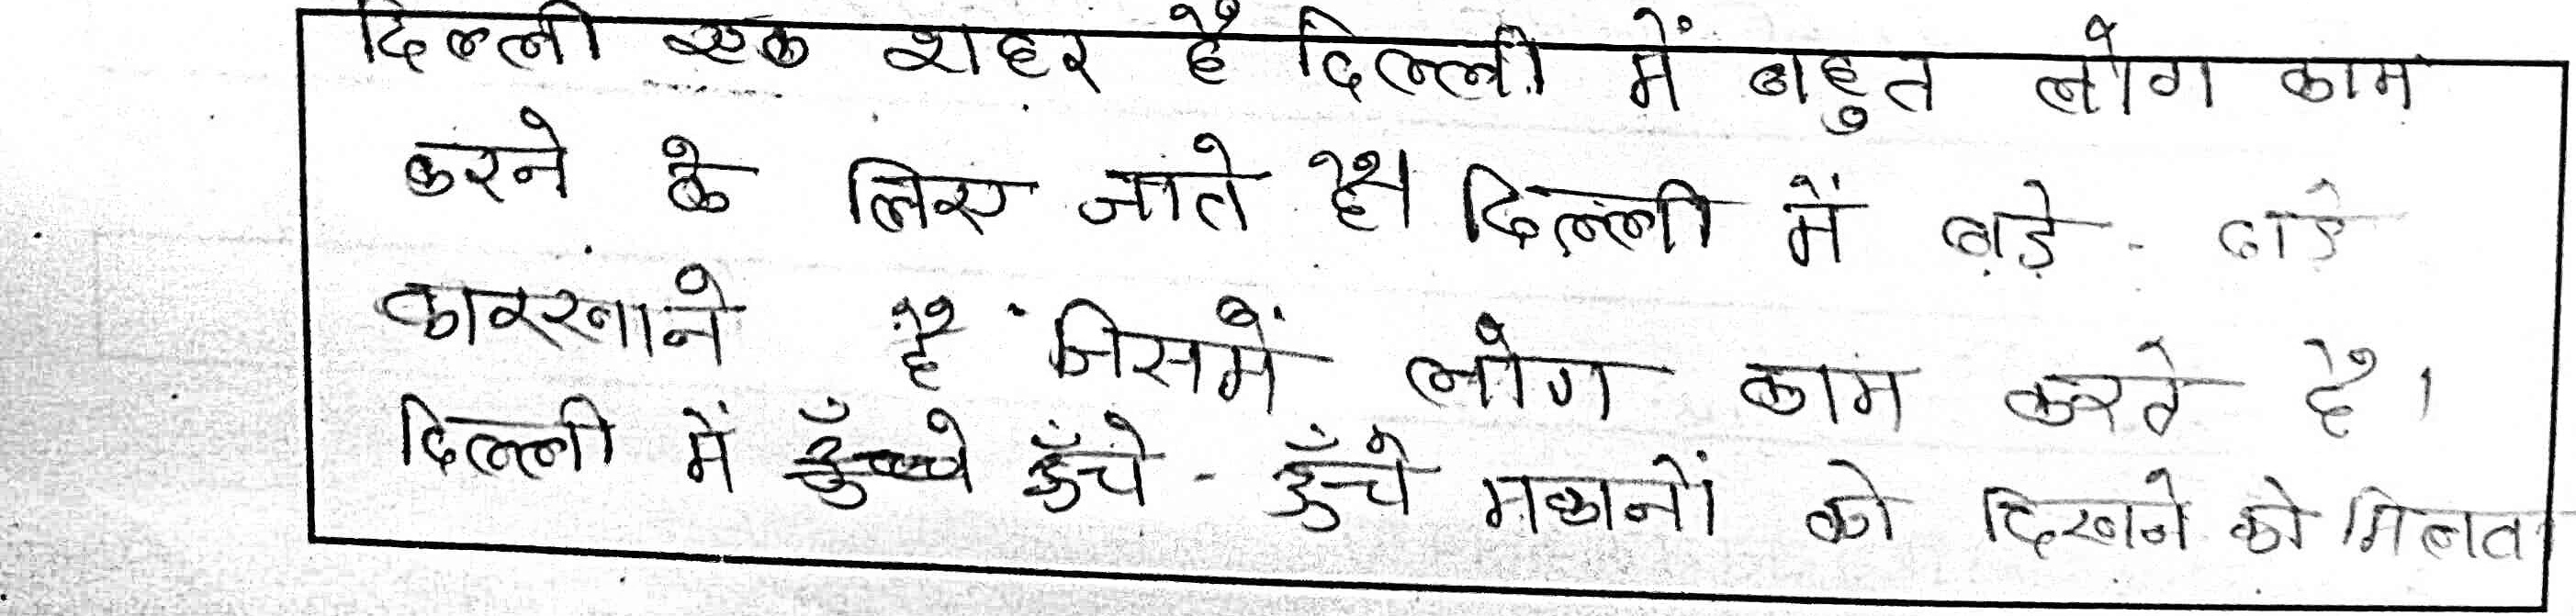 दिल्ली एक शहर है दिल्ली में बहुत लोग काम
करने के लिए जाते है। दिल्ली में बड़े - बड़े
कारखाने हैं जिसमें लोग काम करते है।
दिल्ली में ऊँचे - ऊँचे मकानों को दिखने को मिलत